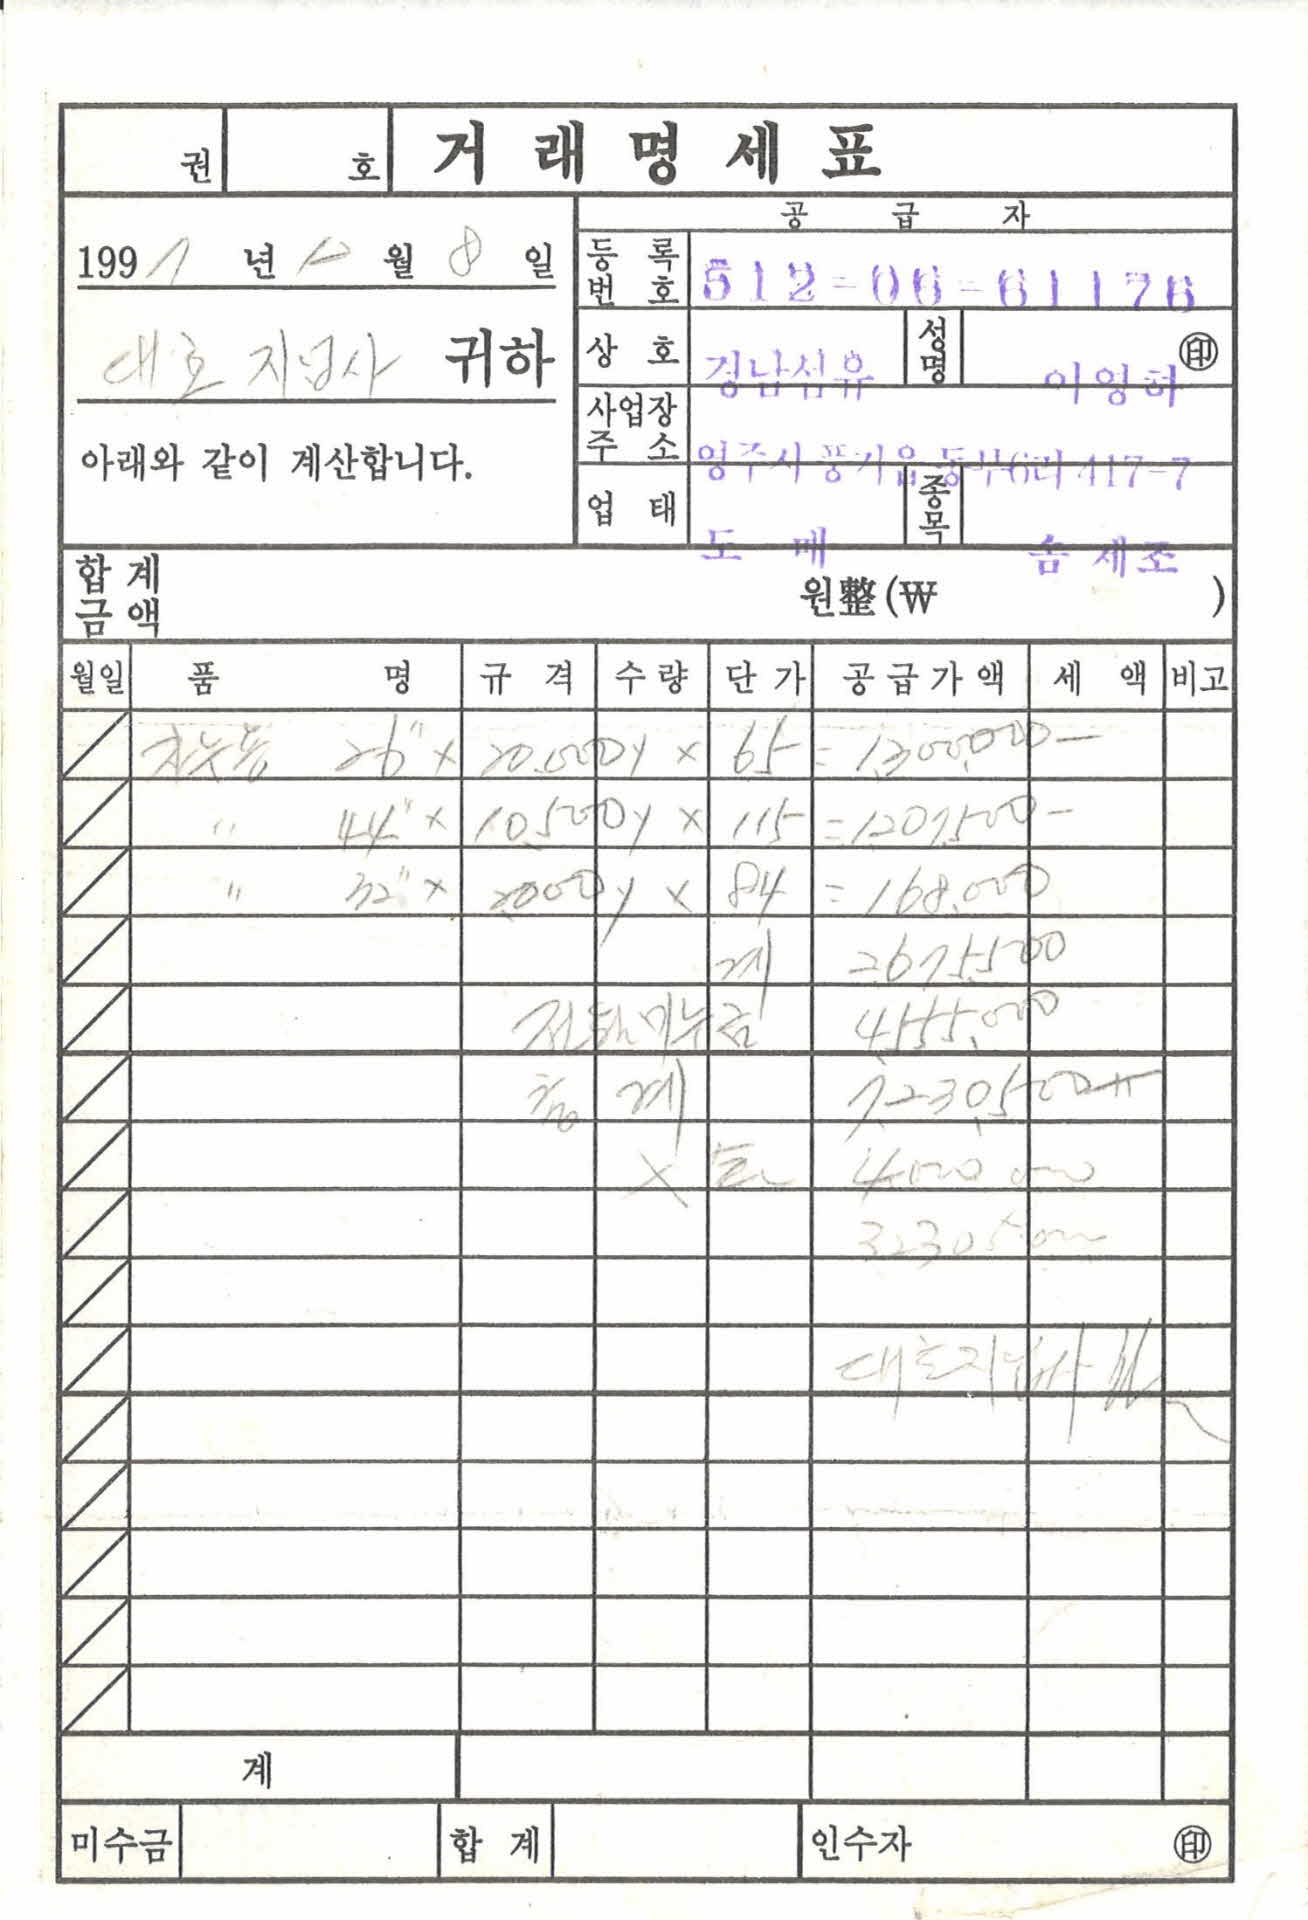 권 호 거래명세표
공급자
1997년 10월 8일
대호지업사 귀하
아래와 같이 계산합니다.
등록번호 512-06-61176
상호 경남섬유 성명 이영하 ㊞
사업장주소 영주시 풍기읍 동부6리 417-7
업태 도매 종목 솜 제조
합계금액 원整(₩ )
월일 품명 규격 수량 단가 공급가액 세액 비고
26" x 20.000y x 65 = 1,300,000-
" 44" x 10,500y x 115 = 1207,500-
" 32" x 2000y x 84 = 168,000
계 2675,500
4,555,000
총계 7,230,500
x 4,000,000
3230500
대호지업사
계
미수금 합계 인수자 ㊞